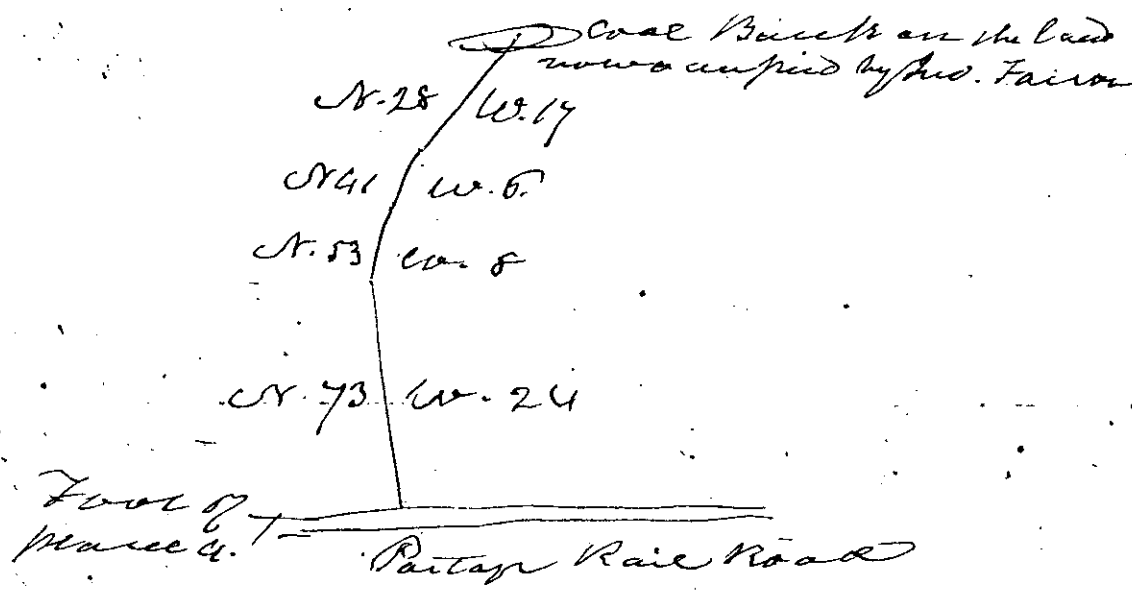 Coal Bank on the land
now occupied by Jno.
N. 28 W. 17
N 41 W. 5.
N. 53 W. 8
N. 73 W. 24
Foot of
plane 4.
Portage Rail Road